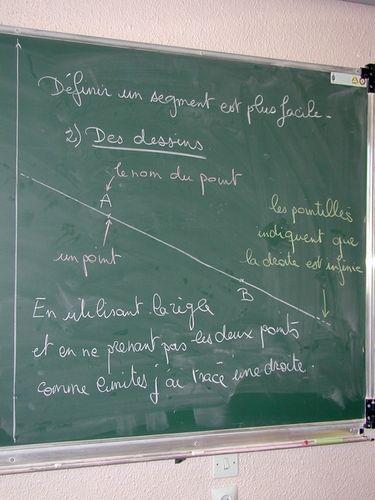 Définir un segment est plus facile.
2) Des dessins
le nom du point
A
les pointillés
indiquent que
la droite est infinie
un point
B
En utilisant la règle
et en ne prenant pas les deux points
comme limites j'ai tracé une droite.